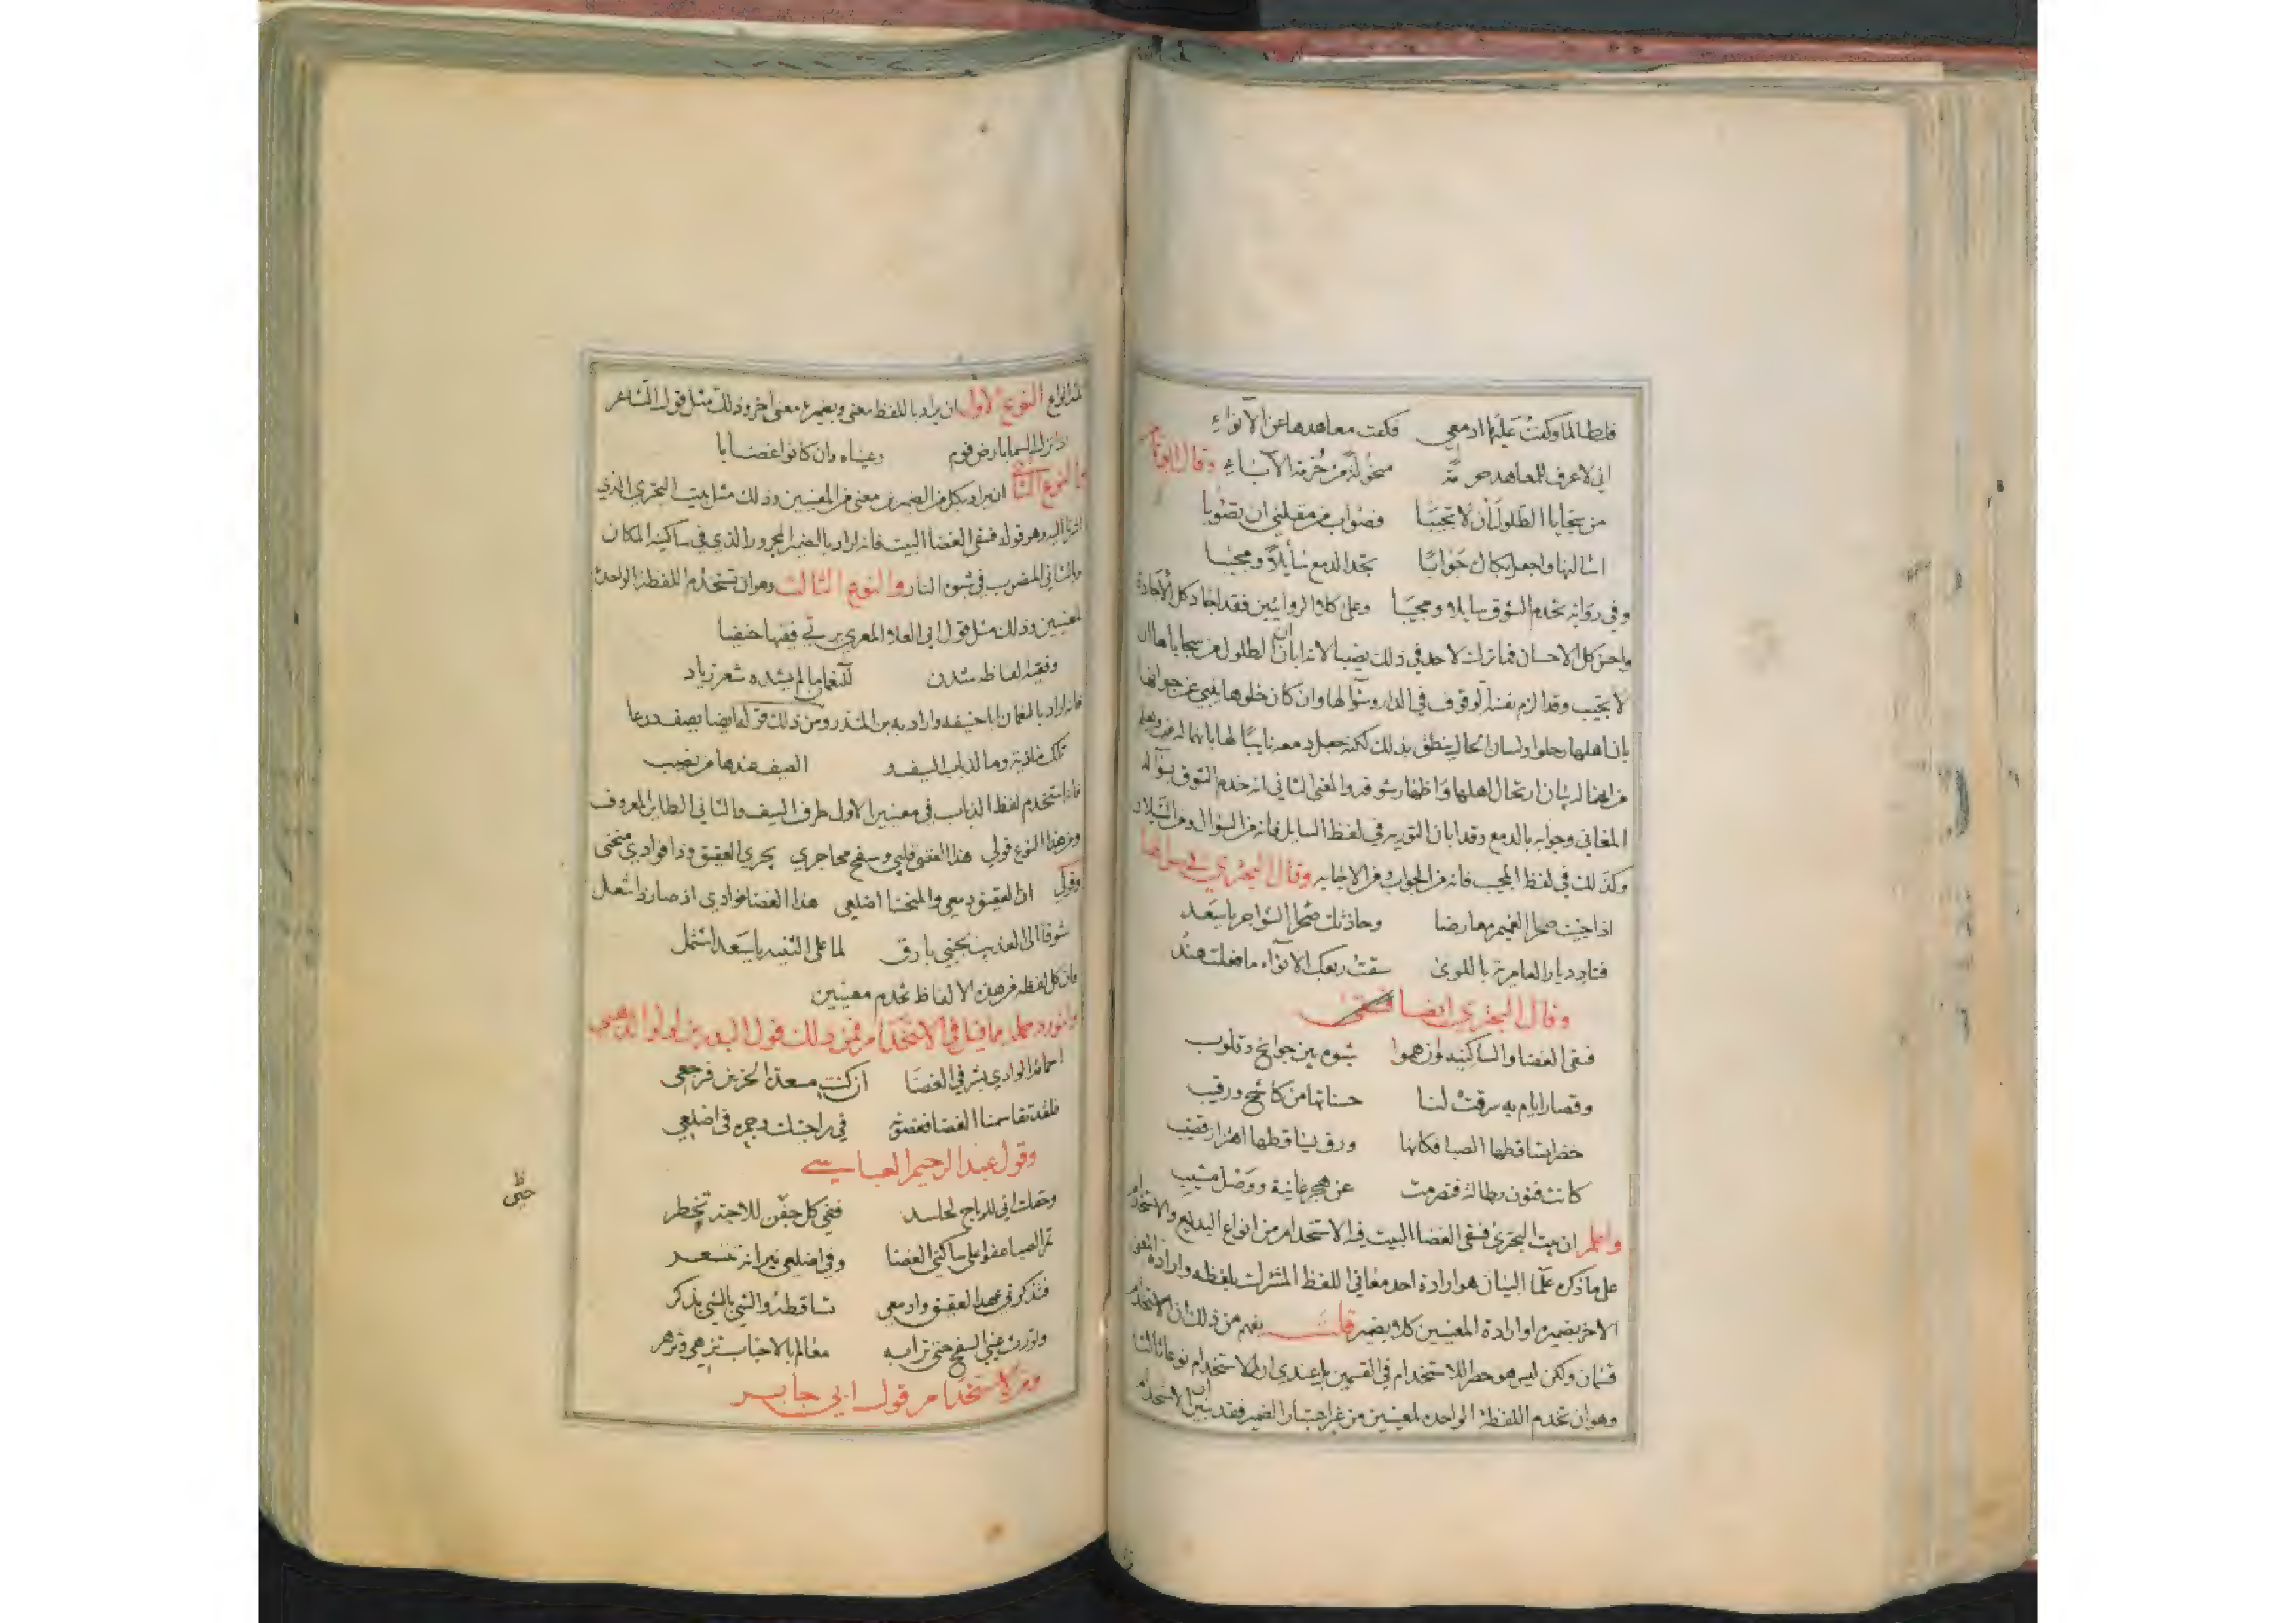 فلطالما وكفت عليها ادمعي فكفت معاهدها عن الانواء
اني لاعرف للمعاهد حرمة منحولة من حُرمة الآباء وقال ابو تمام
من سجايا الطلول أن لا تجيبا فصواب من مقلتي ان تصوبا
اسالنها واجعل بكاك جوابًا تجد الدمع سايلاً ومجيبا
وفي رواية تخدم الشوق سايلا ومجيبا وعلى كلا الروايتين فقد اجاد كل الاجادة
واحسن كل الاحسان فما ترك لاحد في ذلك نصيبا لانه ابان ان الطلول من سجاياها ان
لا تجيب وقد الزم نفسه الوقوف في الدار وسؤالها وان كان خلوها ينبي عن جوابها
بان اهلها رحلوا ولسان الحال ينطق بذلك لكنه جعل دمعه نايبًا لها
ارتحال اهلها واظهار شوقه والمعنى الثاني انه خدم الشوق بسؤاله
المغاني وجوابه بالدمع وقد ابان التورية في لفظ السايل فانه من السؤال ومن السيلان
وكذلك في لفظ المجيب فانه من الجواب ومن الاجابه وقال البحتري
اذا جئت صحرا الغميم معارضا وحاذتك صحرا السواجر يا سعد
فناد ديار العامرية باللوى سقت ربعك الانواء ما فعلت هندُ
وقال البحتري ايضا
فسقى الغضا والساكنيه وان هموا شبوه بين جوانح وقلوب
وقصار ايام به سرقت لنا حسناتها من كاشح ورقيب
خضر تساقطها الصبا فكانها ورق يساقطها اهتزاز قضيب
كانت فنون بطالة فتصرمت عن هجر غانية ووصل مشيب
واعلم ان بيت البحتري فسقى الغضا البيت فيه الاستخدام من انواع البديع والاستخدام
على ما ذكره علما البيان هو ارادة احد معاني اللفظ المشترك بلفظه وارادة المعنى
الاخر بضميره او ارادة المعنيين كلا بضمير قلت يفهم من ذلك ان الاستخدام
قسمان ولكن ليس هو حصرا للاستخدام في القسمين بل عندي ان للاستخدام نوعا ثالثا
وهو ان تخدم اللفظة الواحده لمعنيين من غير اعتبار الضمير فقد تبين ان الاستخدام
النوع الاول ان يراد باللفظ معنى وبضميره معنى اخر وذلك مثل قول الشاعر
اذا نزل السما بارض قوم رعيناه وان كانوا غضابا
والنوع الثاني ان يراد بكل من الضميرين معنى من المعنيين وذلك مثل بيت البحتري الذي
اشرنا اليه وهو قوله فسقى الغضا البيت فانه اراد بالضمير المجرور الذي في ساكنيه المكان
وبالثاني المنصوب في شبوه النار والنوع الثالث وهو ان تستخدم اللفظة الواحدة
لمعنيين وذلك مثل قول ابي العلا المعري يرثي فقيها حنفيا
وفقيه الفاظه شدن للنعمان ما لم يشده شعر زياد
فانه اراد بالنعمان ابا حنيفه واراد به بن المنذر ومن ذلك قوله ايضا يصف درعا
تلك ماذية وما لذباب السيف والصيف عندها من نصيب
فانه استخدم لفظ الذباب في معنيين الاول طرف السيف والثاني الطاير المعروف
ومن هذا النوع قولي هذا العقيق قلبي وسفح محاجري يجري العقيق وذا فوادي منحنى
وقولي ان العقيق دمعي والمنحنا اضلعي هذا الغضا فوادي اذ صار ذا اشتعال
شوقا الى العذيب بجنبي بارق لما على الثنيه يا سعد اشتمل
فان كل لفظه من هذه الالفاظ تخدم معنيين
ولنورد جملة مما قيل في الاستخدام فمن ذلك قول البدر بن لولو الذهبي
احمامة الوادي بشرقي الغضا ان كنت مسعدة الحزين فرجعي
فلقد تقاسمنا الغضا فغضونه في راحتيك وجمره في اضلعي
وقول عبد الرحيم العباسي
وحقك اني للرياح لحاسد ففي كل حين للاحبة تخطر
تمر الصبا عفوا على ساكني الغضا وفي اضلعي نيرانه تتسعر
فتذكرني عهد العقيق وادمعي تساقطه والشي بالشي يذكر
وتورث عيني السفح حتى ترى به معالم بالاحباب تزهي وتزهر
ومن الاستخدام قول ابي جابر